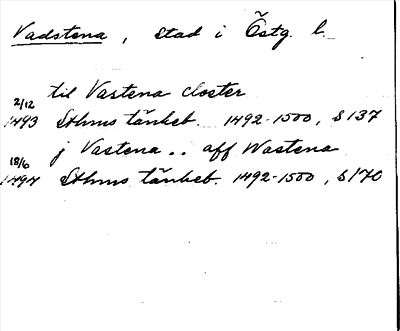 Vadstena, stad i Östg. l.
til Vastena closter
2/12
1493 Sthms tänkeb. 1492-1500, s 137
j Vastena .. aff Wastena
18/6
1494 Sthms tänkeb. 1492-1500, s 170